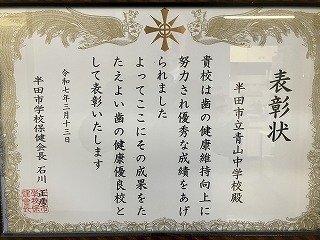 表彰状
半田市立青山中学校殿
貴校は歯の健康維持向上に
努力され優秀な成績をあげ
られました
よってここにその成果をた
たえよい歯の健康優良校と
して表彰いたします
令和七年三月十三日
半田市学校保健会長 石川